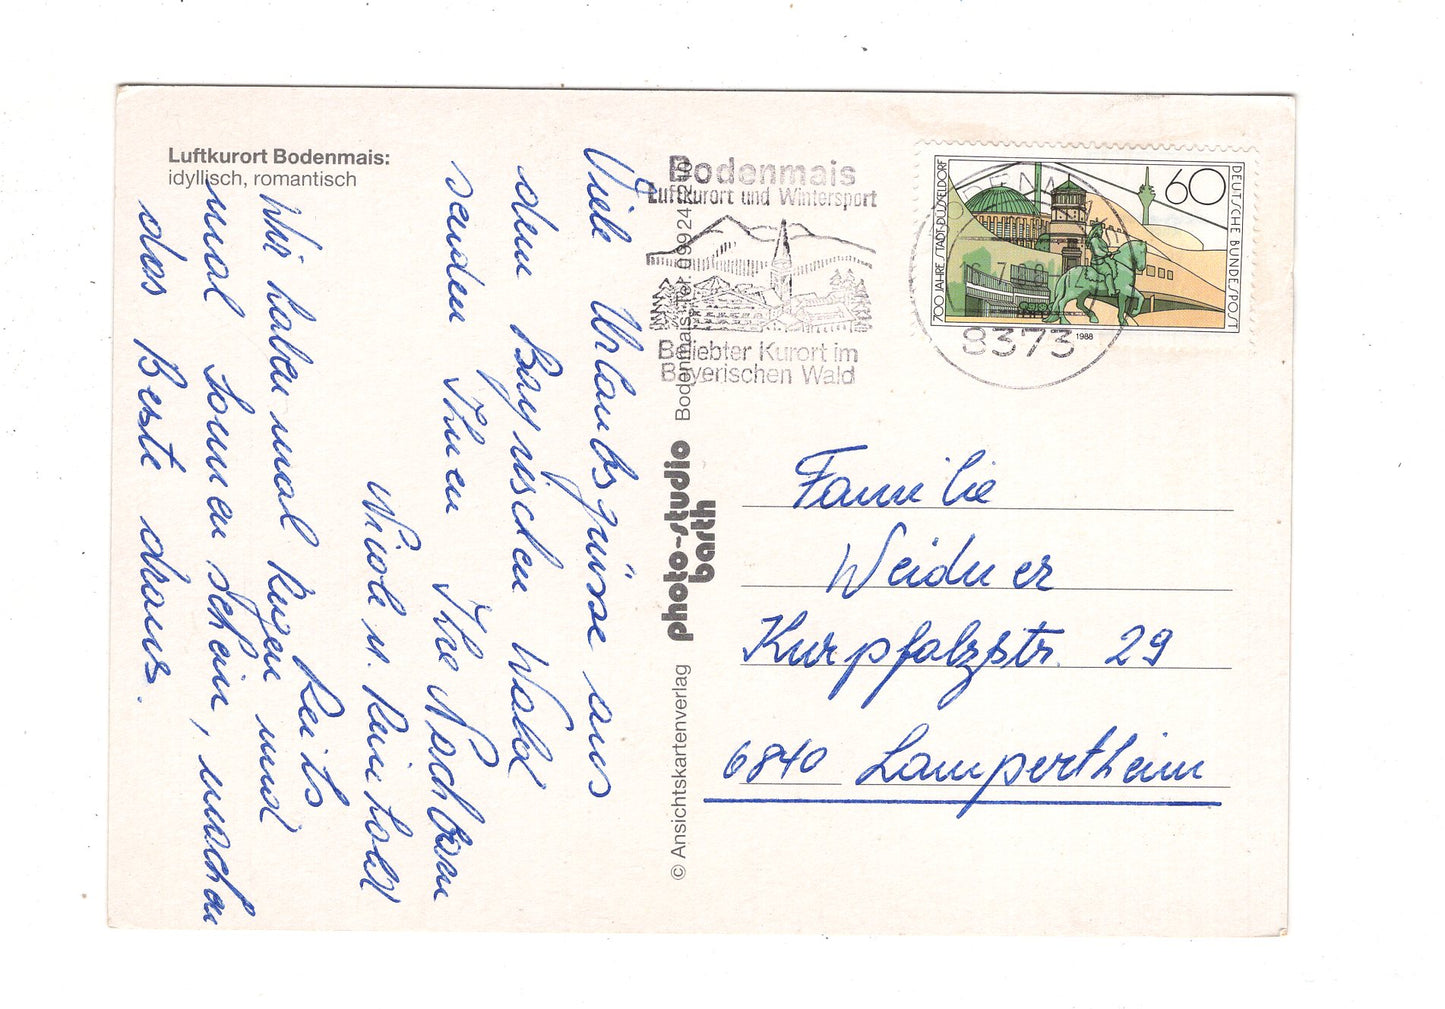 Luftkurort Bodenmais:
idyllisch, romantisch
Viele Urlaubsgrüsse aus
dem Bayrischen Wald
senden Ihnen Ihre Nachbarn
Nicole u. Reinhold
Reits
Wir haben mal Regen und
mal Sonnenschein, machen
das Beste draus.
© Ansichtskartenverlag photo-studio barth Bodenmais, Tel. 09924/210
Bodenmais
Luftkurort und Wintersport
Beliebter Kurort im
Bayerischen Wald
8373
700 JAHRE STADT DÜSSELDORF
60
DEUTSCHE BUNDESPOST
1988
Familie
Weidner
Kurpfalzstr. 29
6840 Lampertheim